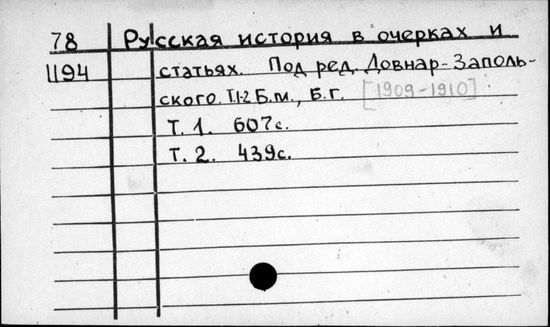 78 Русская история в очерках и
1194 статьях. Под ред. Довнар-Заполь-
ского. Т.1-2 Б.м., Б.г. [1909-1910]
Т. 1. 607с.
Т. 2. 439с.